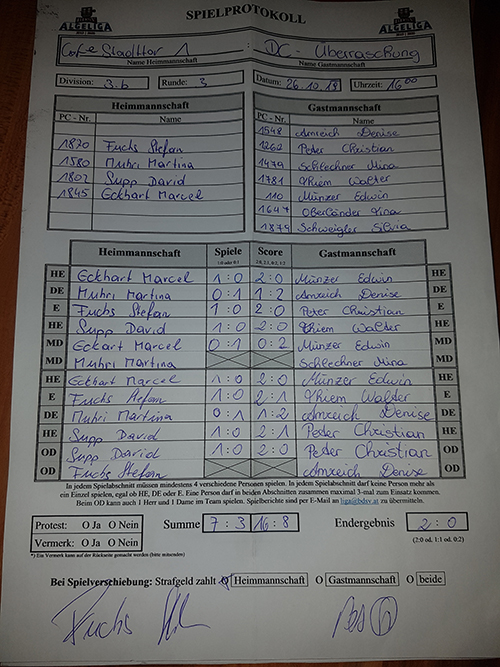 SPIELPROTOKOLL
ALGELIGA ALGELIGA
Cafe Stadttor 1 : DC - Überraschung
Name Heimmannschaft Name Gastmannschaft
Division: 3.b Runde: 3 Datum: 26.10.18 Uhrzeit: 16 00
Heimmannschaft Gastmannschaft
PC - Nr. Name PC - Nr. Name
1548 Amreich Denise
1870 Fuchs Stefan 1262 Peter Christian
1580 Muhri Martina 1479 Schlechner Mina
1802 Supp David 1781 Thiem Walter
1845 Eckhart Marcel 110 Münzer Edwin
1647 Oberländer
1879 Schweigler Silvia
Heimmannschaft Spiele Score Gastmannschaft
1:0 oder 0:1 2:0, 2:1, 0:2, 1:2
HE Eckhart Marcel 1:0 2:0 Münzer Edwin HE
DE Muhri Martina 0:1 1:2 Amreich Denise DE
E Fuchs Stefan 1:0 2:0 Peter Christian E
HE Supp David 1:0 2:0 Thiem Walter HE
MD Eckart Marcel 0:1 0:2 Münzer Edwin MD
MD Muhri Martina Schlechner Mina MD
HE Eckhart Marcel 1:0 2:0 Münzer Edwin HE
E Fuchs Stefan 1:0 2:1 Thiem Walter E
DE Muhri Martina 0:1 1:2 Amreich Denise DE
HE Supp David 1:0 2:1 Peter Christian HE
OD Supp David 1:0 2:0 Peter Christian OD
OD Fuchs Stefan Amreich Denise OD
In jedem Spielabschnitt müssen mindestens 4 verschiedene Personen spielen. In jedem Spielabschnitt darf keine Person mehr als
ein Einzel spielen, egal ob HE, DE oder E. Eine Person darf in beiden Abschnitten zusammen maximal 3-mal zum Einsatz kommen.
Beim OD kann auch 1 Herr und 1 Dame im Team spielen. Spielberichte sind per E-Mail an liga@bdsv.at zu übermitteln.
Protest: O Ja O Nein Summe 7:3 16:8 Endergebnis 2:0
Vermerk: O Ja O Nein (2:0 od. 1:1 od. 0:2)
*) Ein Vermerk kann auf der Rückseite gemacht werden (bitte umwenden)
Bei Spielverschiebung: Strafgeld zahlt O Heimmannschaft O Gastmannschaft O beide
Fuchs